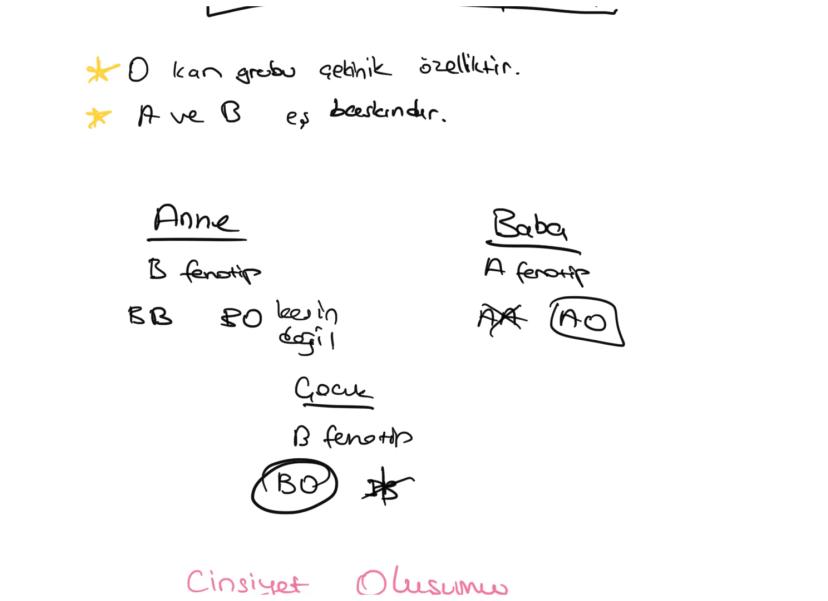 O kan grubu çekinik özelliktir.
A ve B eş baskındır.
Anne
Baba
B fenotip
A fenotip
BB BO kesin değil
AA AO
Çocuk
B fenotip
BO
Cinsiyet Oluşumu